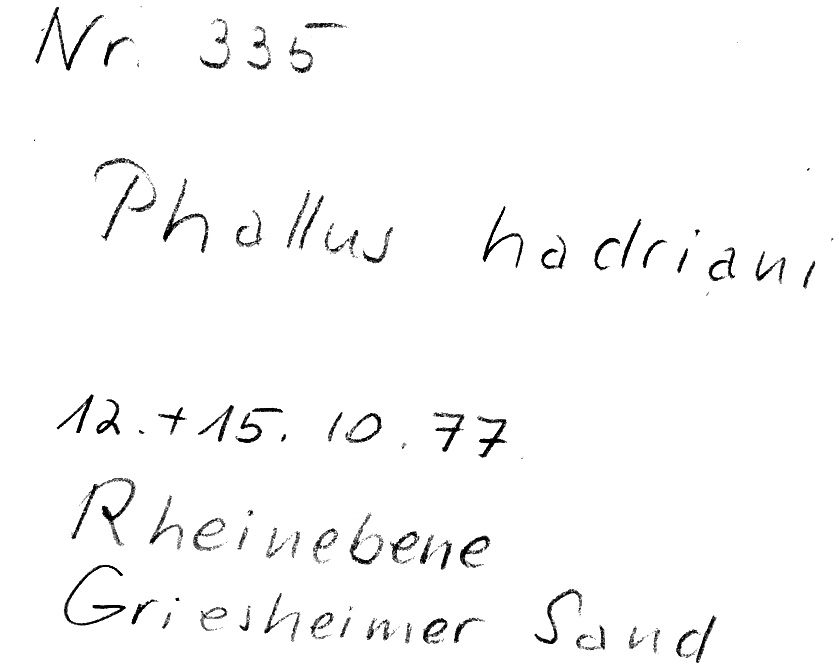 Nr. 335
Phallus hadriani
12.+15. 10. 77
Rheinebene
Griesheimer Sand